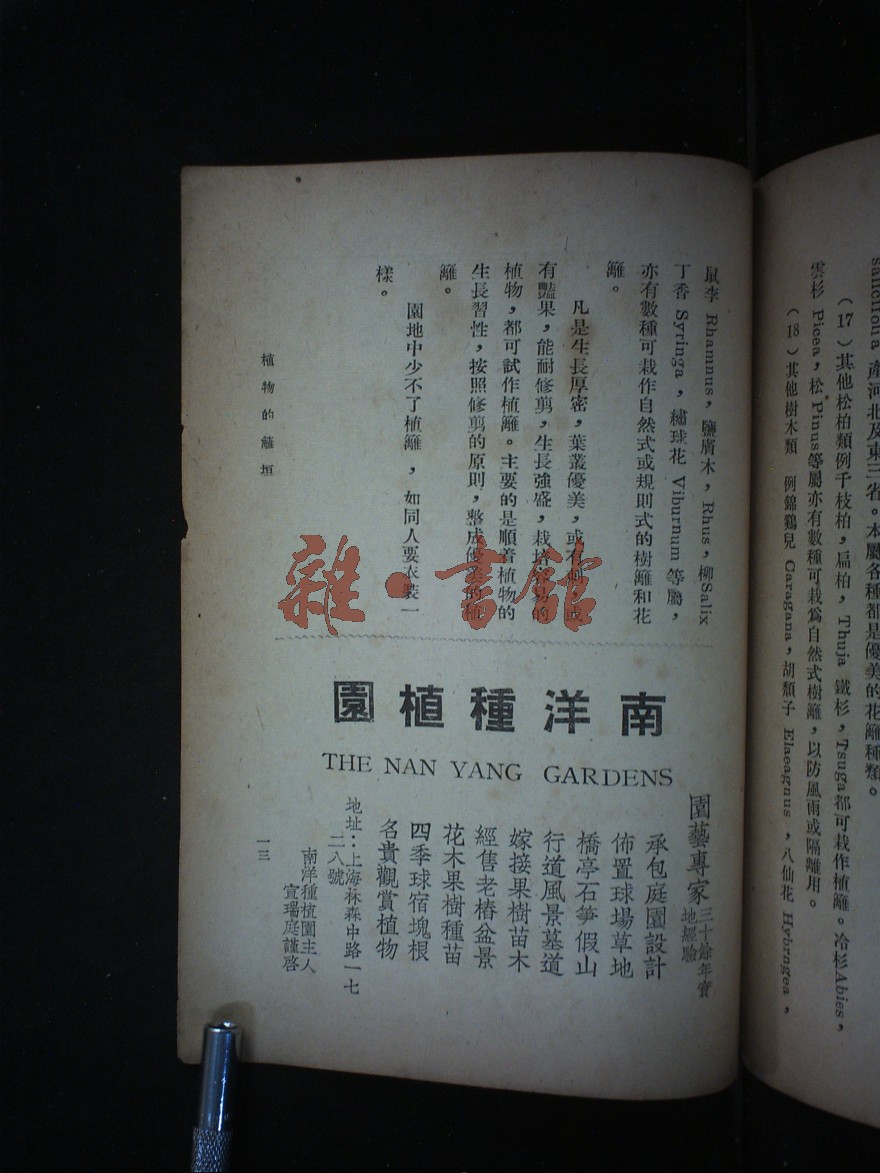 產河北及東三省。本屬各種都是優美的花籬種類。
（17）其他松柏類例千枝柏，扁柏，Thuja 鐵杉，Tsuga都可栽作植籬。冷杉Abies，
雲杉 Picea，松 Pinus等屬亦有數種可栽爲自然式樹籬，以防風雨或隔離用。
（18）其他樹木類　例錦鷄兒 Caragana，胡頹子 Elaeagnus，八仙花 Hybrngea，
鼠李 Rhamnus，鹽膚木，Rhus，柳Salix
丁香 Syringa，繡球花 Viburnum 等屬，
亦有數種可栽作自然式或規則式的樹籬和花
籬。
凡是生長厚密，葉叢優美，或有刺，或
有豔果，能耐修剪，生長強盛，栽培容易的
植物，都可試作植籬。主要的是順着植物的
生長習性，按照修剪的原則，整成優美的植
籬。
園地中少不了植籬，如同人要衣裝一
樣。
植物的籬垣
一三
雜·書館
南洋種植園
THE NAN YANG GARDENS
園藝專家 三十餘年實地經驗
承包庭園設計
佈置球場草地
橋亭石筍假山
行道風景墓道
嫁接果樹苗木
經售老樁盆景
花木果樹種苗
四季球宿塊根
名貴觀賞植物
地址：上海林森中路一七
二八號
南洋種植園主人
宣瑞庭謹啓